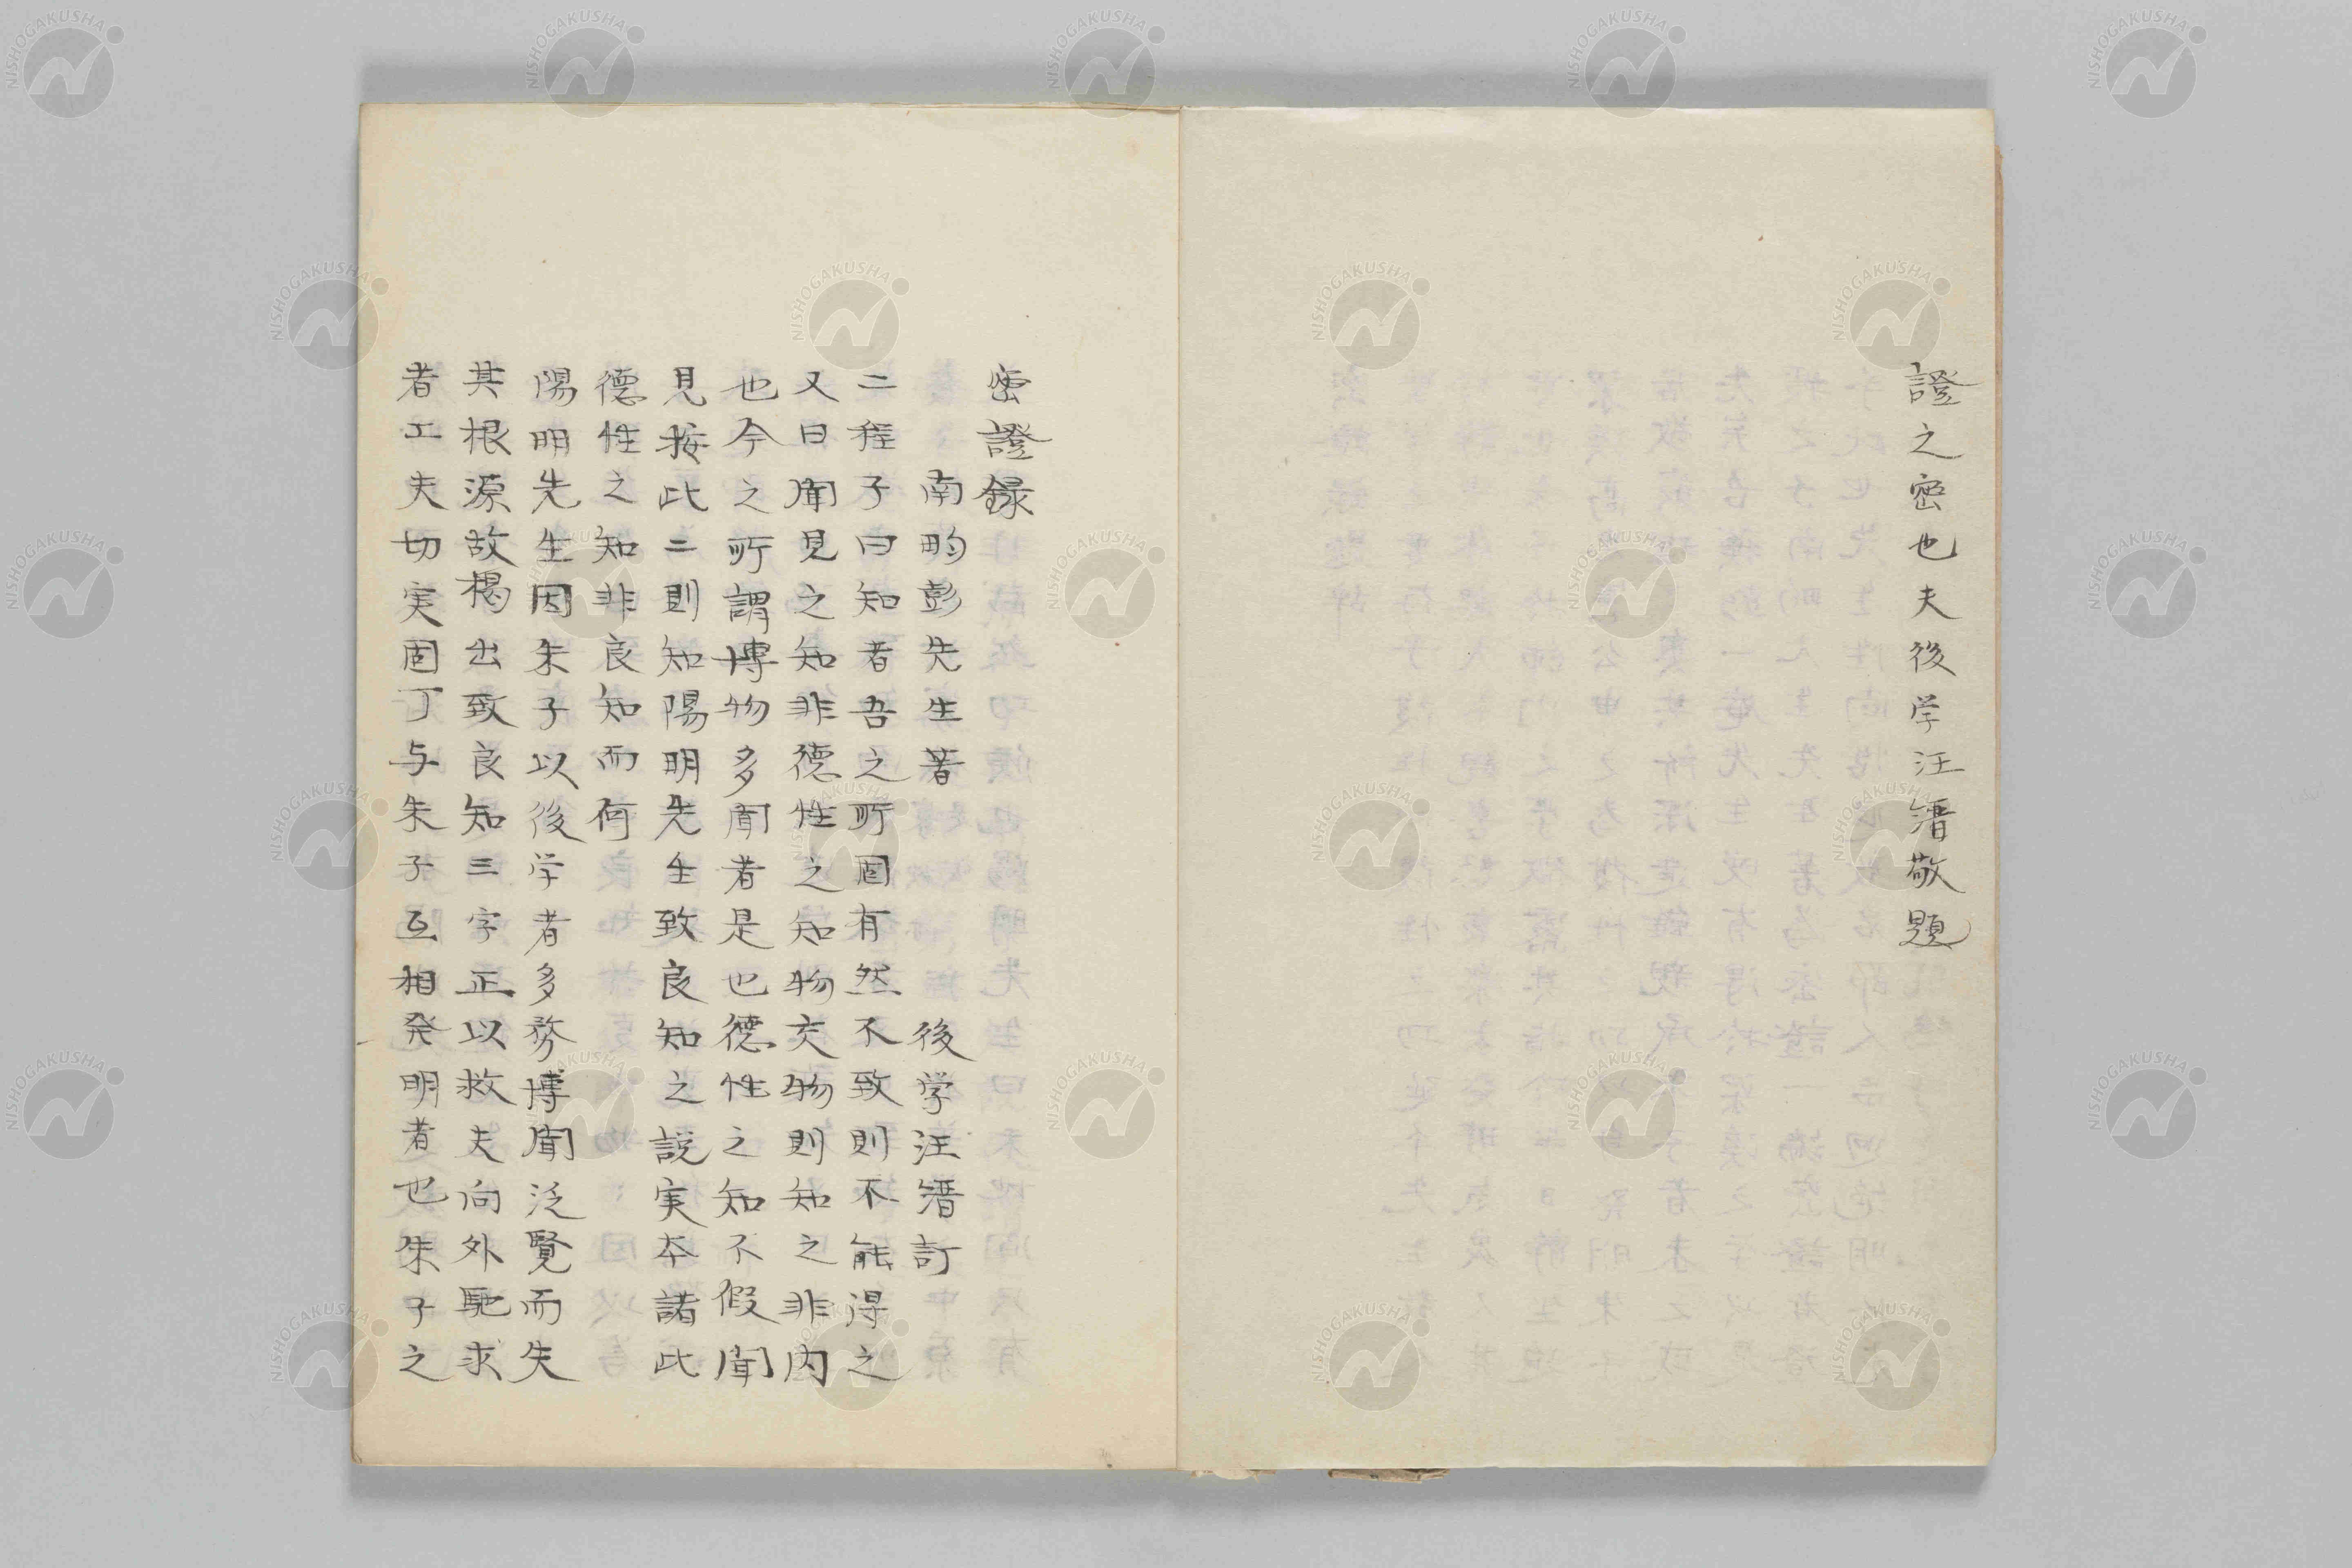 證之密也夫後学汪縉敬題
密證録
南畇彭先生著　後学汪縉訂
二程子曰知者吾之所固有然不致則不能得之
又曰聞見之知非德性之知物交物則知之非内
也今之所謂博物多聞者是也德性之知不假聞
見按此二則知陽明先生致良知之說実本諸此
德性之知非良知而何
陽明先生因朱子以後学者多務博聞泛覽而失
其根源故楬出致良知三字正以救夫向外馳求
者工夫切実固丁与朱子互相発明者也朱子之
NISHOGAKUSHA